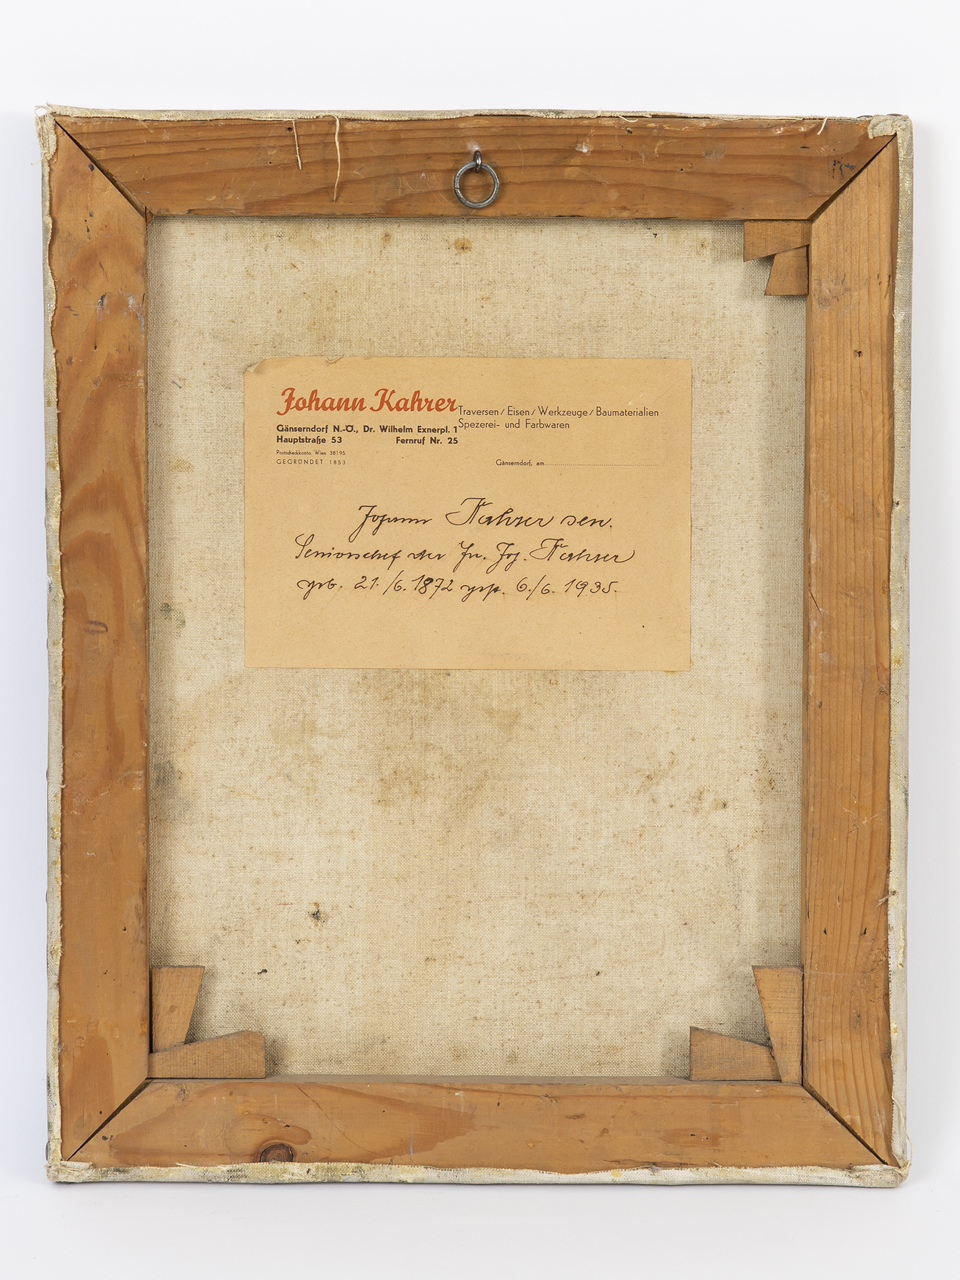 Johann Kahrer
Traversen / Eisen / Werkzeuge / Baumaterialien
Spezerei- und Farbwaren
Gänserndorf N.-Ö., Dr. Wilhelm Exnerpl. 1
Hauptstraße 53 Fernruf Nr. 25
Postscheckkonto Wien 38195
GEGRÜNDET 1853
Gänserndorf, am
Johann Kahrer sen.
Seniorchef der Fa. Joh. Kahrer
geb. 21./6. 1872 gest. 6./6. 1935.